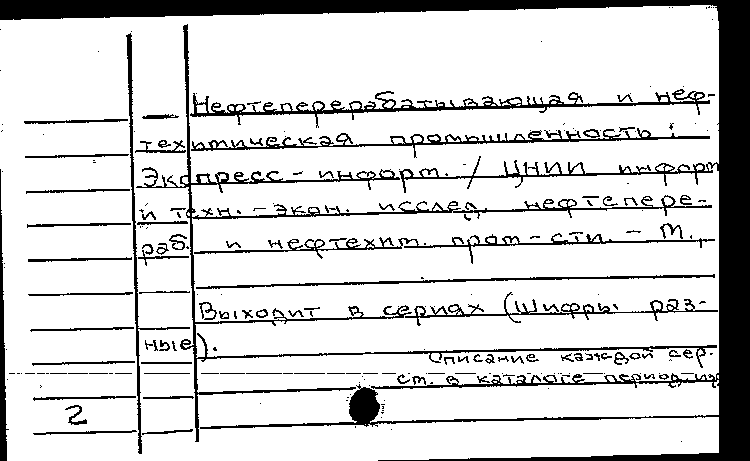 Нефтеперерабатывающая и неф-
техимическая промышленность :
Экспресс-информ. / ЦНИИ информ
и техн.-экон. исслед. нефтепере-
раб. и нефтехим. пром-сти. - М.,
Выходит в сериях (Шифры раз-
ные).
Описание каждой сер.
см. в каталоге период. из
2